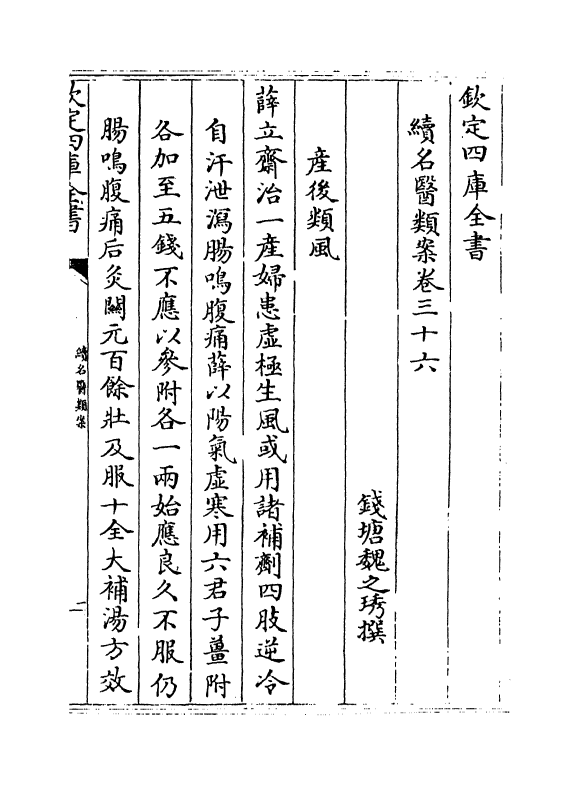 欽定四庫全書
續名醫類案卷三十六
錢塘魏之琇撰
產後類風
薛立齋治一產婦患虛極生風或用諸補劑四肢逆冷
自汗泄瀉腸鳴腹痛薛以陽氣虛寒用六君子薑附
各加至五錢不應以參附各一兩始應良久不服仍
腸鳴腹痛后灸關元百餘壯及服十全大補湯方效
欽定四庫全書
續名醫類案
一